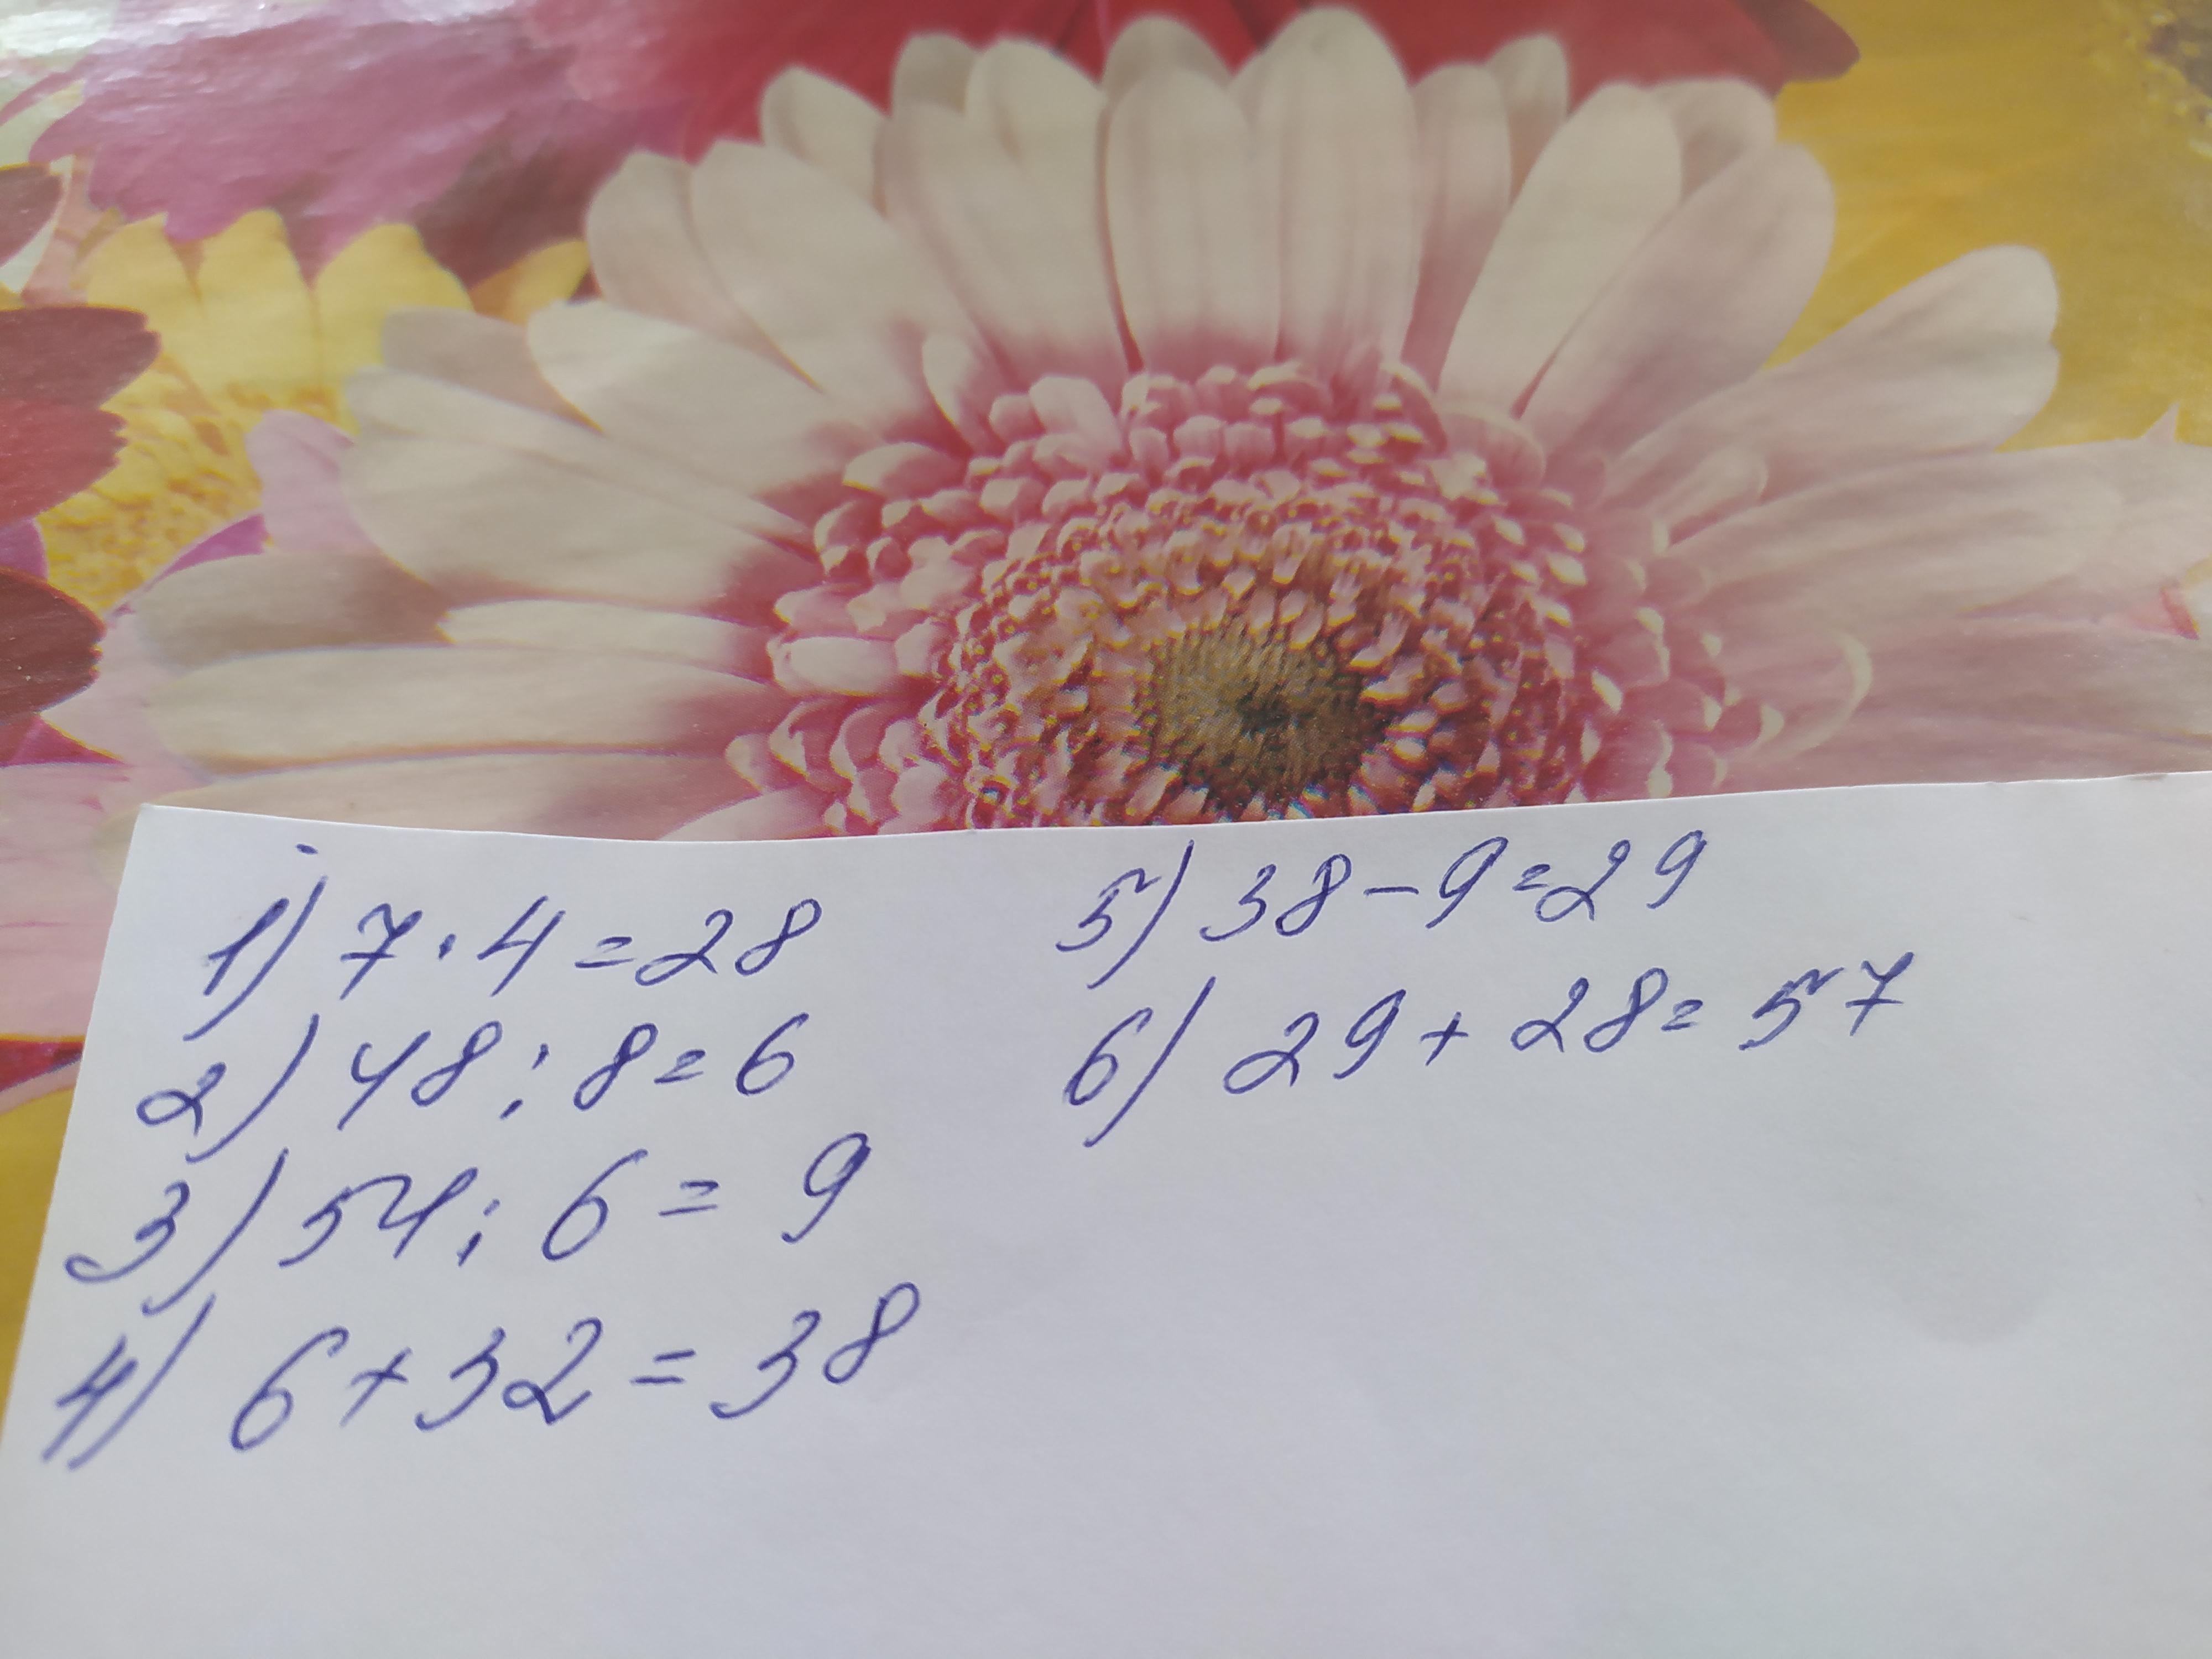 1) 7 · 4 = 28
2) 48 : 8 = 6
3) 54 : 6 = 9
4) 6 + 32 = 38
5) 38 - 9 = 29
6) 29 + 28 = 57